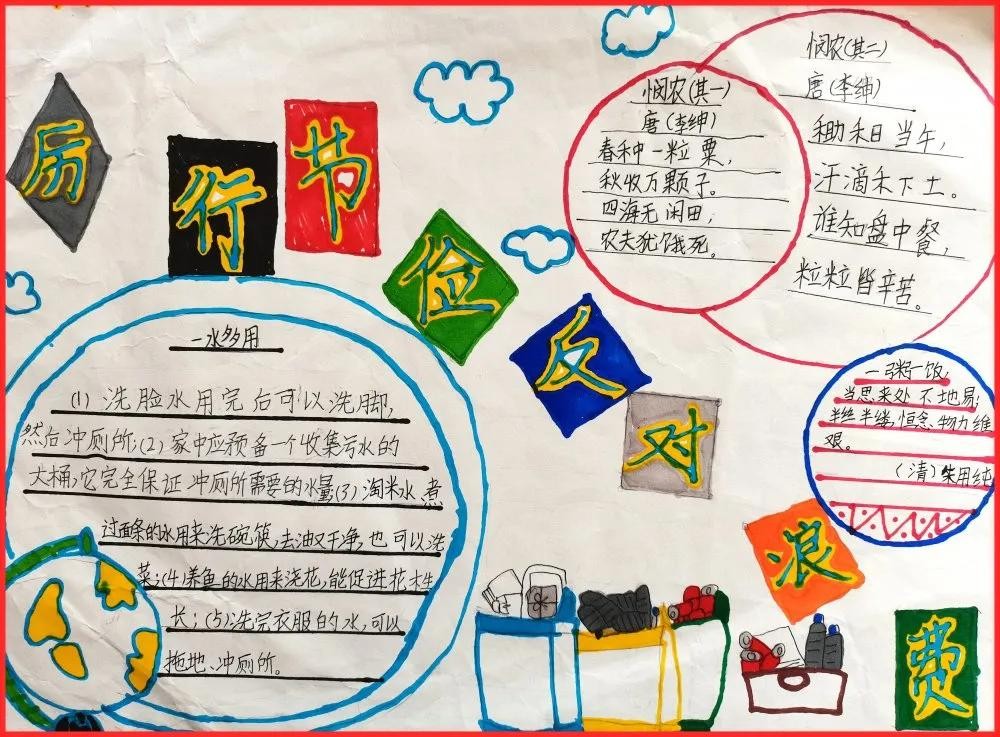 厉行节俭反对浪费
悯农(其一)
唐(李绅)
春种一粒粟,
秋收万颗子。
四海无闲田,
农夫犹饿死。
悯农(其二)
唐(李绅)
锄禾日当午,
汗滴禾下土。
谁知盘中餐,
粒粒皆辛苦。
一粥一饭,
当思来处不地易,
半丝半缕,恒念物力维
艰。
(清)朱用纯
一水多用
(1)洗脸水用完后可以洗脚,
然后冲厕所;(2)家中应预备一个收集污水的
大桶,它完全保证冲厕所需要的水量(3)淘米水、煮
过面条的水用来洗碗筷,去油又干净,也可以洗
菜;(4)养鱼的水用来浇花,能促进花木生
长;(5)洗完衣服的水,可以
拖地、冲厕所。